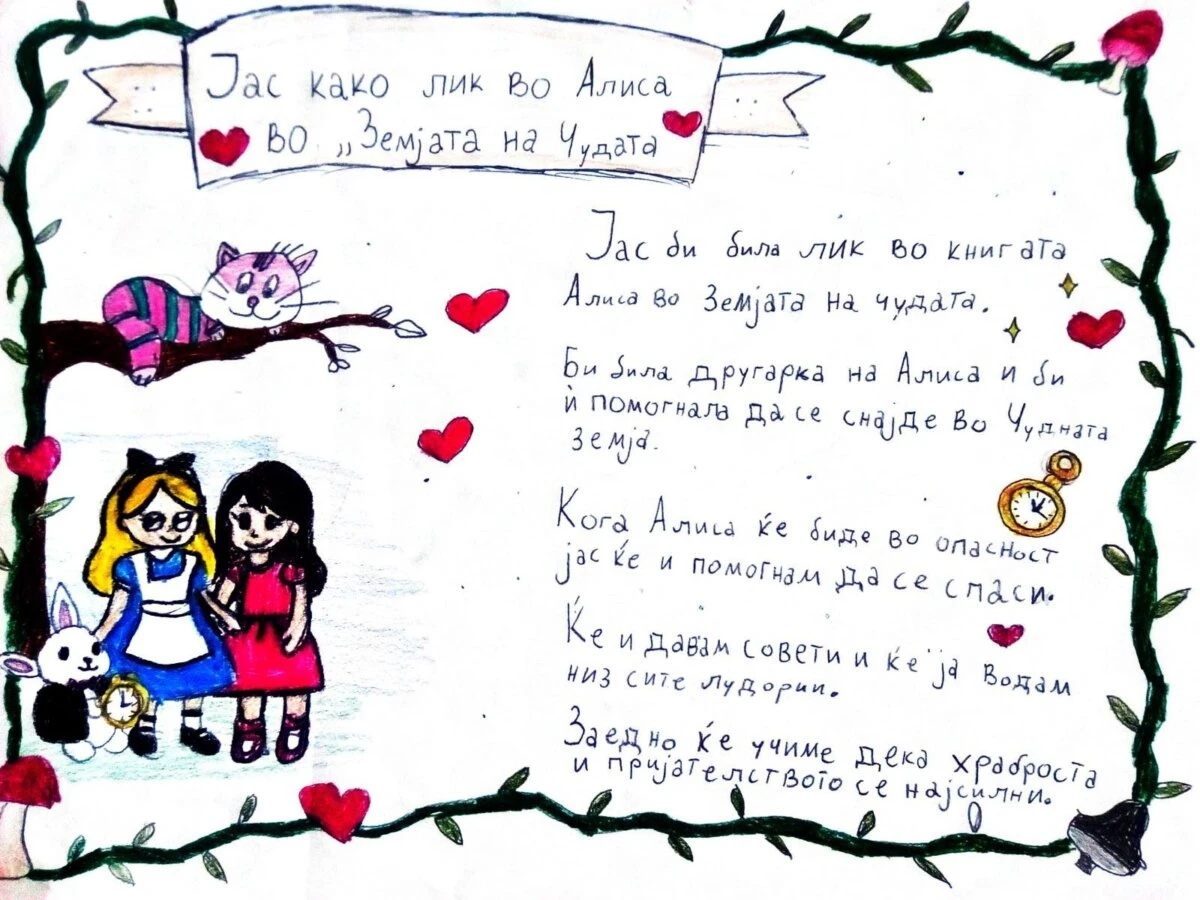 Јас како лик во Алиса
во „Земјата на Чудата
Јас би била лик во книгата
Алиса во Земјата на чудата.
Би била другарка на Алиса и би
ѝ помогнала да се снајде во Чудната
земја.
Кога Алиса ќе биде во опасност
јас ќе и помогнам да се спаси.
Ќе и давам совети и ќе ја водам
низ сите лудории.
Заедно ќе учиме дека храброста
и пријателството се најсилни.